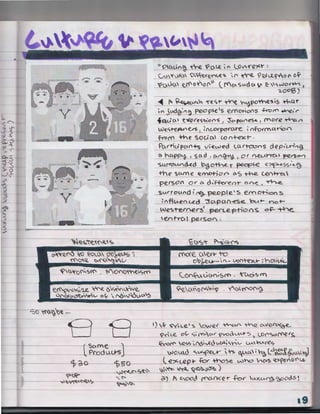 Culture & PRICING
"Placing the Face in Context:
Cultural Differences in the Perception of
Facial emotion" (Masuda & Ellsworth,
2008)
◀ A Research test the hypothesis that
in judging people's emotions from their
facial expressions, Japanese, more than
Westerners, incorporate information
from the social context.
Participants viewed cartoons depicting
a happy, sad, angry, or neutral person
surrounded by other people expressing
the same emotion as the central
person or a different one. The
surrounding people's emotions
influenced Japanese but not
Westerners' perceptions of the
central person.
2 16
2 16
Westerners
East Asians
attend to focal objects:
more
more alert to
object-in-context: holistic
Platonism, Monotheism
Confucianism, Taoism
emphasize the distinctive
of individuals
Relationship harmony
So maybe...
{ Same Products }
$20
$50
1) If price's lower than the average
price of similar products, consumers
from less individualistic cultures
would suspect its quality
(except for those who has experience
with the products)
2) A good market for luxury goods!
19